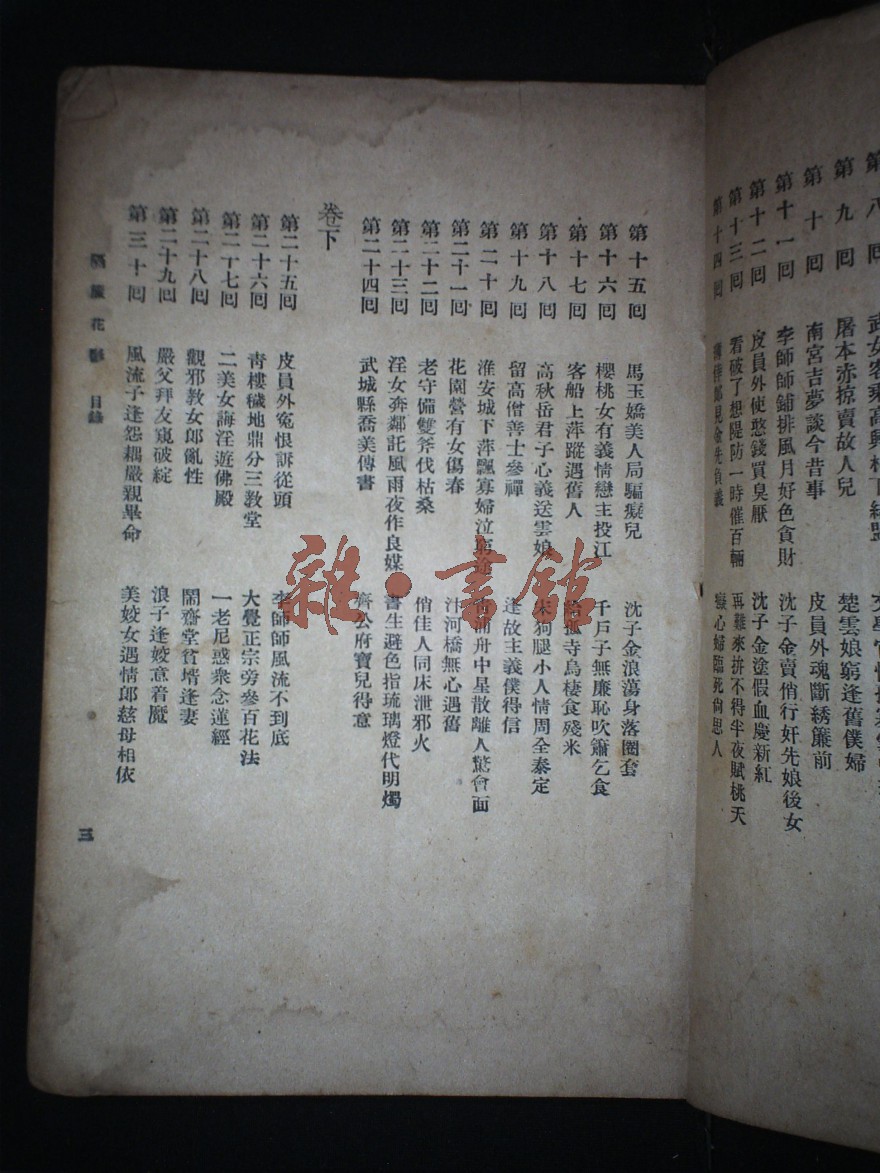 第八回
第九回 屠本赤掠賣故人兒 楚雲娘窮逢舊僕婦
第十回 南宮吉夢談今昔事 皮員外魂斷綉簾前
第十一回 李師師鋪排風月好色貪財 沈子金賣俏行奸先娘後女
第十二回 皮員外使憨錢買臭厭 沈子金塗假血慶新紅
第十三回 看破了想隄防一時催百輛 再難來拚不得半夜賦桃夭
第十四回 郎見金先負義 癡心婦臨死尙思人
第十五回 馬玉嬌美人局騙癡兒 沈子金浪蕩身落圈套
第十六回 櫻桃女有義情戀主投江 千戶子無廉恥吹簫乞食
第十七回 客船上萍蹤遇舊人 給孤寺鳥棲食殘米
第十八回 高秋岳君子心義送雲娘 宋狗腿小人情周全泰定
第十九回 留高僧善士參禪 逢故主義僕得信
第二十回 淮安城下萍飄寡婦泣窮途 浦舟中星散離人驚會面
第二十一回 花園營有女傷春 汴河橋無心遇舊
第二十二回 老守備雙斧伐枯桑 俏佳人同床泄邪火
第二十三回 淫女奔鄰託風雨夜作良媒 書生避色指琉璃燈代明燭
第二十四回 武城縣喬美傳書 齊公府寶兒得意
卷下
第二十五回 皮員外寃恨訴從頭 李師師風流不到底
第二十六回 靑樓穢地鼎分三敎堂 大覺正宗旁參百花法
第二十七回 二美女誨淫遊佛殿 一老尼惑衆念蓮經
第二十八回 觀邪敎女郎亂性 鬧齋堂貧壻逢妻
第二十九回 嚴父拜友窺破綻 浪子逢姣意着魔
第三十回 風流子逢怨耦嚴親畢命 美姣女遇情郎慈母相依
隔簾花影 目錄
三
雜·書館